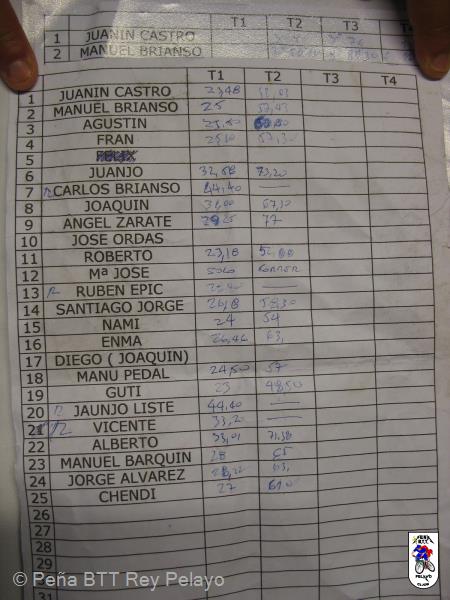 T1 T2 T3 T4
1 JUANIN CASTRO
2 MANUEL BRIANSO
T1 T2 T3 T4
1 JUANIN CASTRO 23,48
2 MANUEL BRIANSO 25 57,43
3 AGUSTIN
4 FRAN
5 FELIX
6 JUANJO 32,58 73,20
7 CARLOS BRIANSO 44,40 —
8 JOAQUIN 67,30
9 ANGEL ZARATE 77
10 JOSE ORDAS
11 ROBERTO 23,18
12 Mª JOSE SOLO CORRER
13 R RUBEN EPIC —
14 SANTIAGO JORGE 26,18 58,30
15 NAMI 24 54
16 ENMA 26,46 63,
17 DIEGO ( JOAQUIN)
18 MANU PEDAL 24,50 57
19 GUTI 23 48,50
20 R JAUNJO LISTE 44,40 —
21 R VICENTE 33,20 —
22 ALBERTO 33,01 71,38
23 MANUEL BARQUIN 28 65
24 JORGE ALVAREZ 63,
25 CHENDI 27
26
27
28
29
30
31
PEÑA BTT PELAYO
© Peña BTT Rey Pelayo